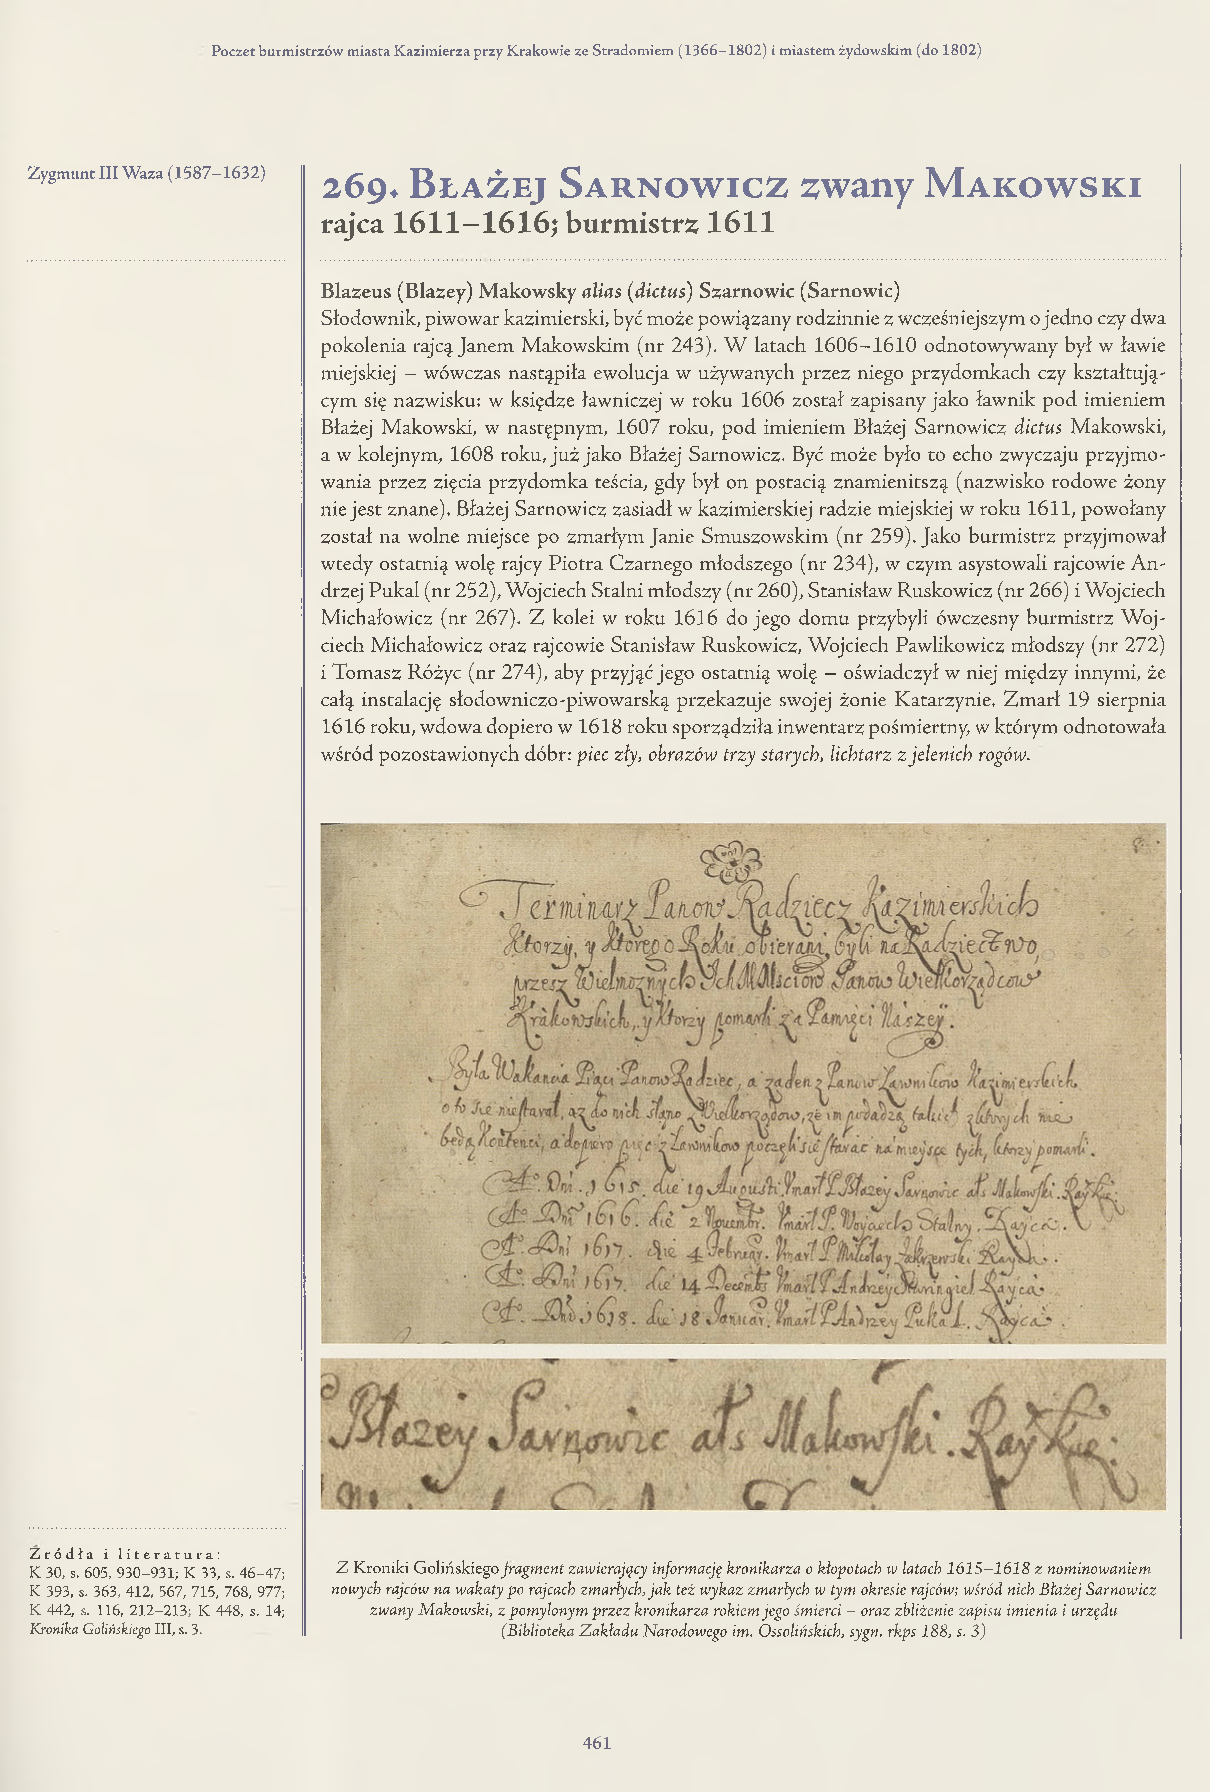 Poczet burmistrzów miasta Kazimierza przy Krakowie ze Stradomiem (1366–1802) i miastem żydowskim (do 1802)
Zygmunt III Waza (1587–1632)
269. Błażej Sarnowicz zwany Makowski
rajca 1611–1616; burmistrz 1611
Blazeus (Blazey) Makowsky alias (dictus) Szarnowic (Sarnowic)
Słodownik, piwowar kazimierski, być może powiązany rodzinnie z wcześniejszym o jedno czy dwa
pokolenia rajcą Janem Makowskim (nr 243). W latach 1606–1610 odnotowywany był w ławie
miejskiej – wówczas nastąpiła ewolucja w używanych przez niego przydomkach czy kształtują-
cym się nazwisku: w księdze ławniczej w roku 1606 został zapisany jako ławnik pod imieniem
Błażej Makowski, w następnym, 1607 roku, pod imieniem Błażej Sarnowicz dictus Makowski,
a w kolejnym, 1608 roku, już jako Błażej Sarnowicz. Być może było to echo zwyczaju przyjmo-
wania przez zięcia przydomka teścia, gdy był on postacią znamienitszą (nazwisko rodowe żony
nie jest znane). Błażej Sarnowicz zasiadł w kazimierskiej radzie miejskiej w roku 1611, powołany
został na wolne miejsce po zmarłym Janie Smuszowskim (nr 259). Jako burmistrz przyjmował
wtedy ostatnią wolę rajcy Piotra Czarnego młodszego (nr 234), w czym asystowali rajcowie An-
drzej Pukal (nr 252), Wojciech Stalni młodszy (nr 260), Stanisław Ruskowicz (nr 266) i Wojciech
Michałowicz (nr 267). Z kolei w roku 1616 do jego domu przybyli ówczesny burmistrz Woj-
ciech Michałowicz oraz rajcowie Stanisław Ruskowicz, Wojciech Pawlikowicz młodszy (nr 272)
i Tomasz Różyc (nr 274), aby przyjąć jego ostatnią wolę – oświadczył w niej między innymi, że
całą instalację słodowniczo-piwowarską przekazuje swojej żonie Katarzynie. Zmarł 19 sierpnia
1616 roku, wdowa dopiero w 1618 roku sporządziła inwentarz pośmiertny, w którym odnotowała
wśród pozostawionych dóbr: piec zły, obrazów trzy starych, lichtarz z jelenich rogów.
Terminarz Panow Radziecz Kazimierskich
Ktorzy, y ktorego Roku obierani byli na Radziectwo,
przesz Wielmoznych Ich MMsciow Panow Wielkorządcow
Krakowskich, y Ktorzy pomarli za Pamięci Naszey.
Była Wakancia Piąci Panow Radziec, a zaden z Panow Ławnikow Kazimierskich
o to sie niestarał, az do nich słano z Wielkorządow, ze im podadzą takich z ktorych nie
będą Kontenci, a dopiero pięc z Ławnikow poczęli sie starac na miejsce tych, ktorzy pomarli.
Ao. Dni. 1615. die 19 Augusti. Vmarł P. Błazey Sarnowic als Makowski. Rayce
Ao. Dni 1616. die 2 Nouembr. Vmarł P. Woyciech Stalny. Rayca.
Ao. Dni 1617. die 4 Februar. Vmarł P. Mikołay Zakrzewski Rayca.
Ao. Dni 1617. die 14 Decembr Vmarł P. Andrzey Rayca
Ao. Dni 1618. die 18 Januar. Vmarł P. Andrzey Pukal. Rayca.
Błazey Sarnowic als Makowski. Rayce
Źródła i literatura:
K 30, s. 605, 930–931; K 33, s. 46–47;
K 393, s. 363, 412, 567, 715, 768, 977;
K 442, s. 116, 212–213; K 448, s. 14;
Kronika Golińskiego III, s. 3.
Z Kroniki Golińskiego fragment zawierający informację kronikarza o kłopotach w latach 1615–1618 z nominowaniem
nowych rajców na wakaty po rajcach zmarłych, jak też wykaz zmarłych w tym okresie rajców; wśród nich Błażej Sarnowicz
zwany Makowski, z pomylonym przez kronikarza rokiem jego śmierci – oraz zbliżenie zapisu imienia i urzędu
(Biblioteka Zakładu Narodowego im. Ossolińskich, sygn. rkps 188, s. 3)
461